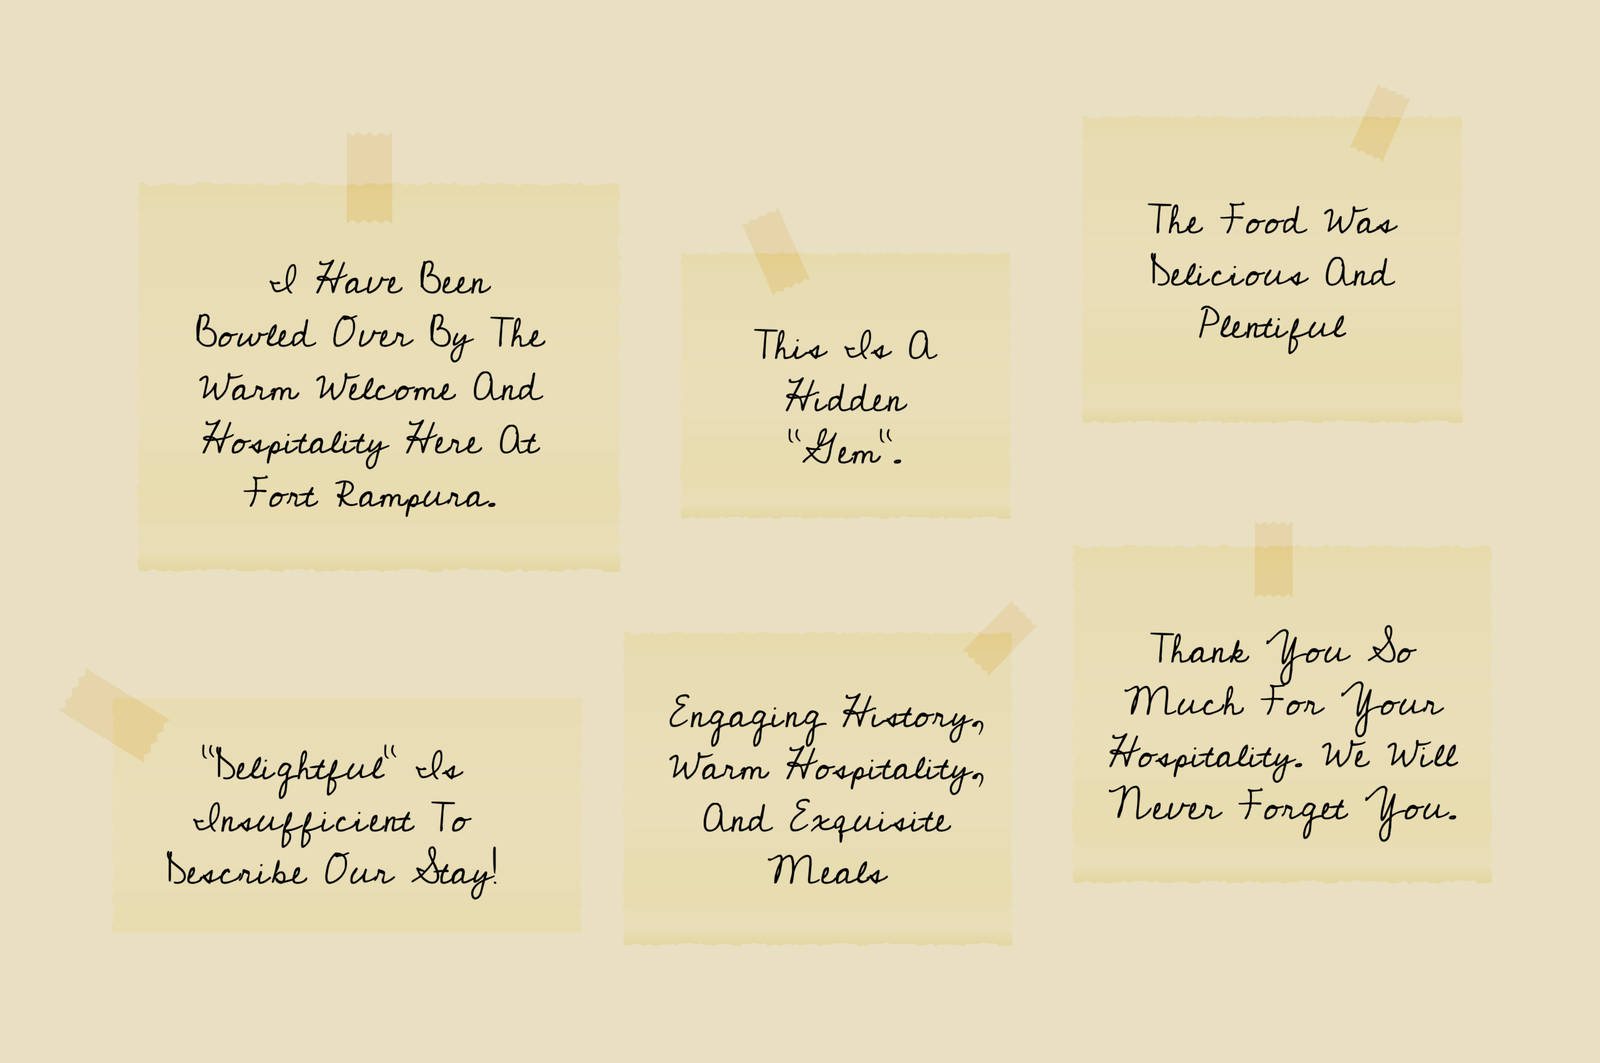 I Have Been
Bowled Over By The
Warm Welcome And
Hospitality Here At
Fort Rampura.
This Is A
Hidden
"Gem".
The Food Was
Delicious And
Plentiful
"Delightful" Is
Insufficient To
Describe Our Stay!
Engaging History,
Warm Hospitality,
And Exquisite
Meals
Thank You So
Much For Your
Hospitality. We Will
Never Forget You.